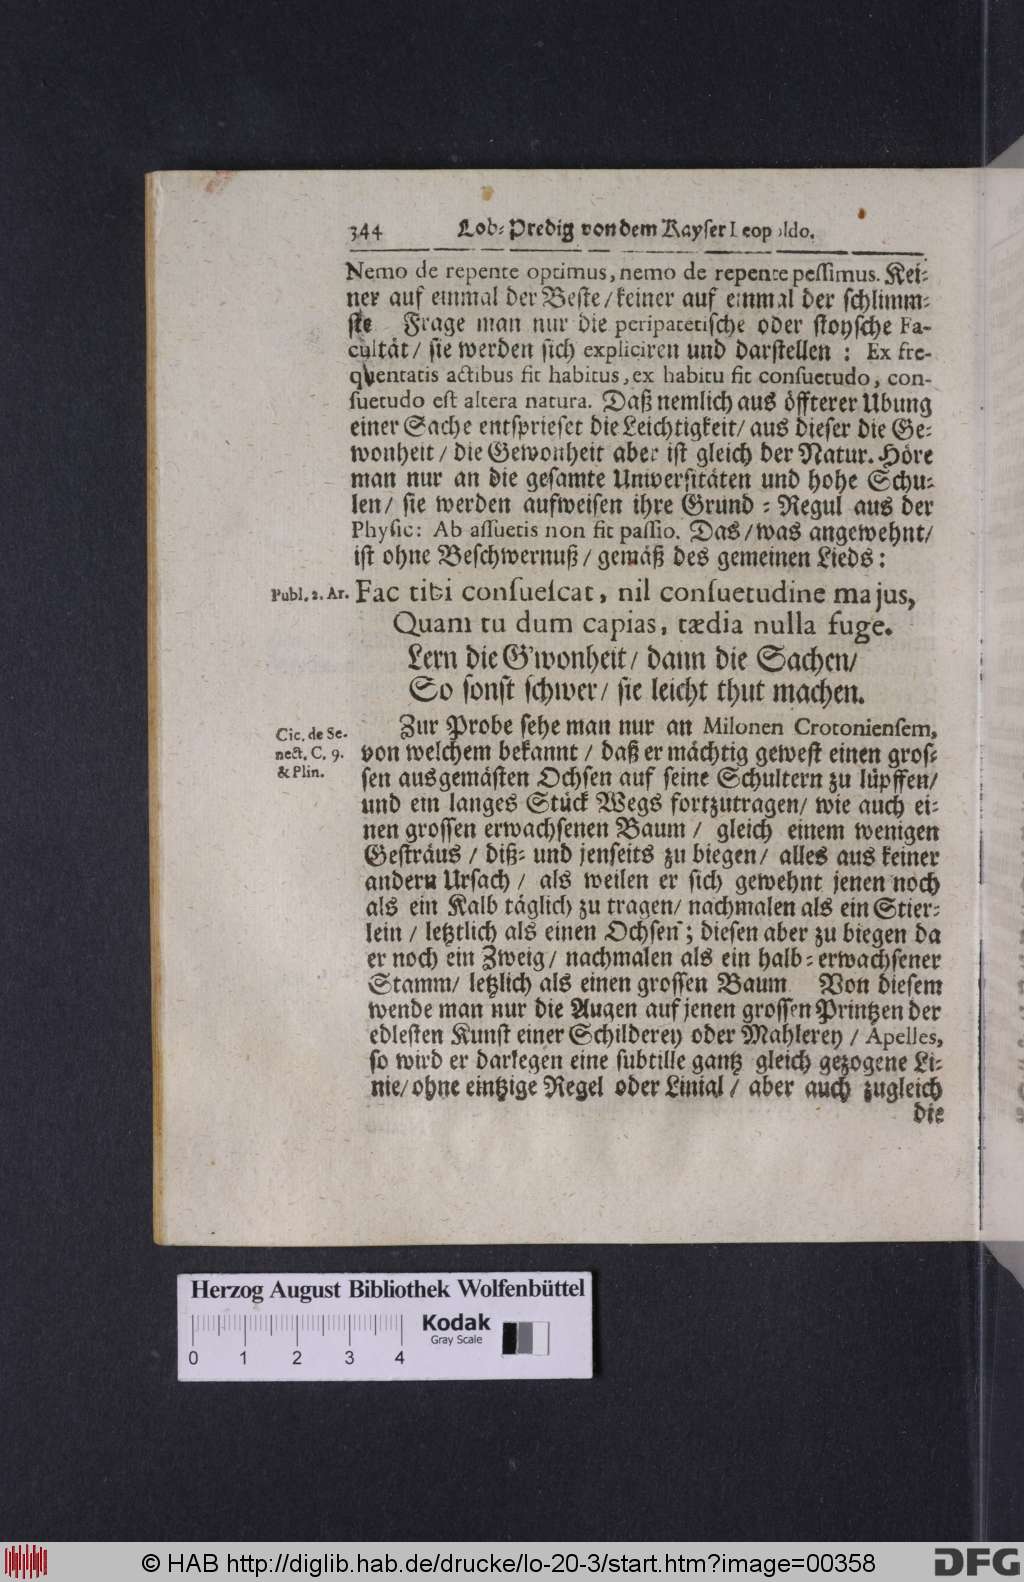 344 Lob-Predig von dem Kayser Leopoldo.
Nemo de repente optimus, nemo de repente pessimus. Kei-
ner auf einmal der Beste / keiner auf einmal der schlimm-
ste Frage man nur die peripatetische oder stoysche Fa-
cultät / sie werden sich expliciren und darstellen : Ex fre-
quentatis actibus fit habitus, ex habitu fit consuetudo, con-
suetudo est altera natura. Daß nemlich aus öffterer Ubung
einer Sache entsprieset die Leichtigkeit / aus dieser die Ge-
wonheit / die Gewonheit aber ist gleich der Natur. Höre
man nur an die gesamte Universitäten und hohe Schu-
len / sie werden aufweisen ihre Grund-Regul aus der
Physic: Ab assuetis non fit passio. Das / was angewehnt /
ist ohne Beschwernuß / gemäß des gemeinen Lieds :
Publ. 2. Ar. Fac tibi consuescat, nil consuetudine majus,
Quam tu dum capias, tædia nulla fuge.
Lern die G'wonheit / dann die Sachen /
So sonst schwer / sie leicht thut machen.
Cic. de Se-
nect. C. 9.
& Plin.
Zur Probe sehe man nur an Milonen Crotoniensem,
von welchem bekannt / daß er mächtig gewest einen gros-
sen ausgemästen Ochsen auf seine Schultern zu lüpffen /
und ein langes Stück Wegs fortzutragen / wie auch ei-
nen grossen erwachsenen Baum / gleich einem wenigen
Gesträus / diß- und jenseits zu biegen / alles aus keiner
andern Ursach / als weilen er sich gewehnt jenen noch
als ein Kalb täglich zu tragen / nachmalen als ein Stier-
lein / letztlich als einen Ochsen ; diesen aber zu biegen da
er noch ein Zweig / nachmalen als ein halb-erwachsener
Stamm / letzlich als einen grossen Baum Von diesem
wende man nur die Augen auf jenen grossen Printzen der
edlesten Kunst einer Schilderey oder Mahlerey / Apelles,
so wird er darlegen eine subtille gantz gleich gezogene Li-
nie / ohne eintzige Regel oder Linial / aber auch zugleich
die
Herzog August Bibliothek Wolfenbüttel
Kodak
Gray Scale
0 1 2 3 4
© HAB http://diglib.hab.de/drucke/lo-20-3/start.htm?image=00358
DFG